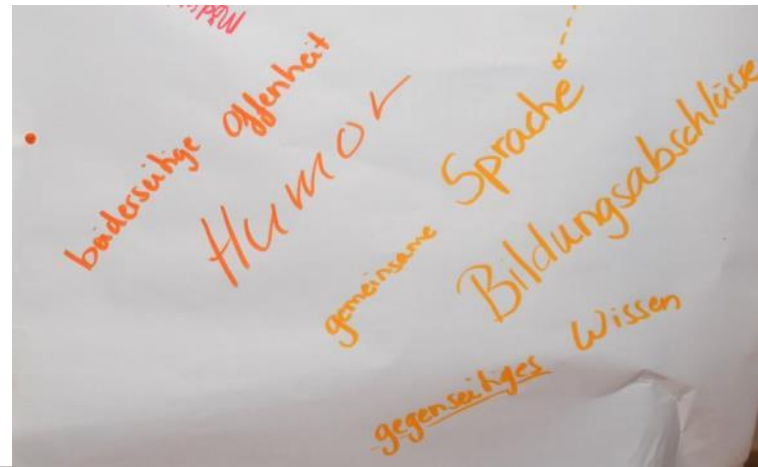 beiderseitige Offenheit
Humor
gemeinsame Sprache
Bildungsabschlüsse
gegenseitiges Wissen